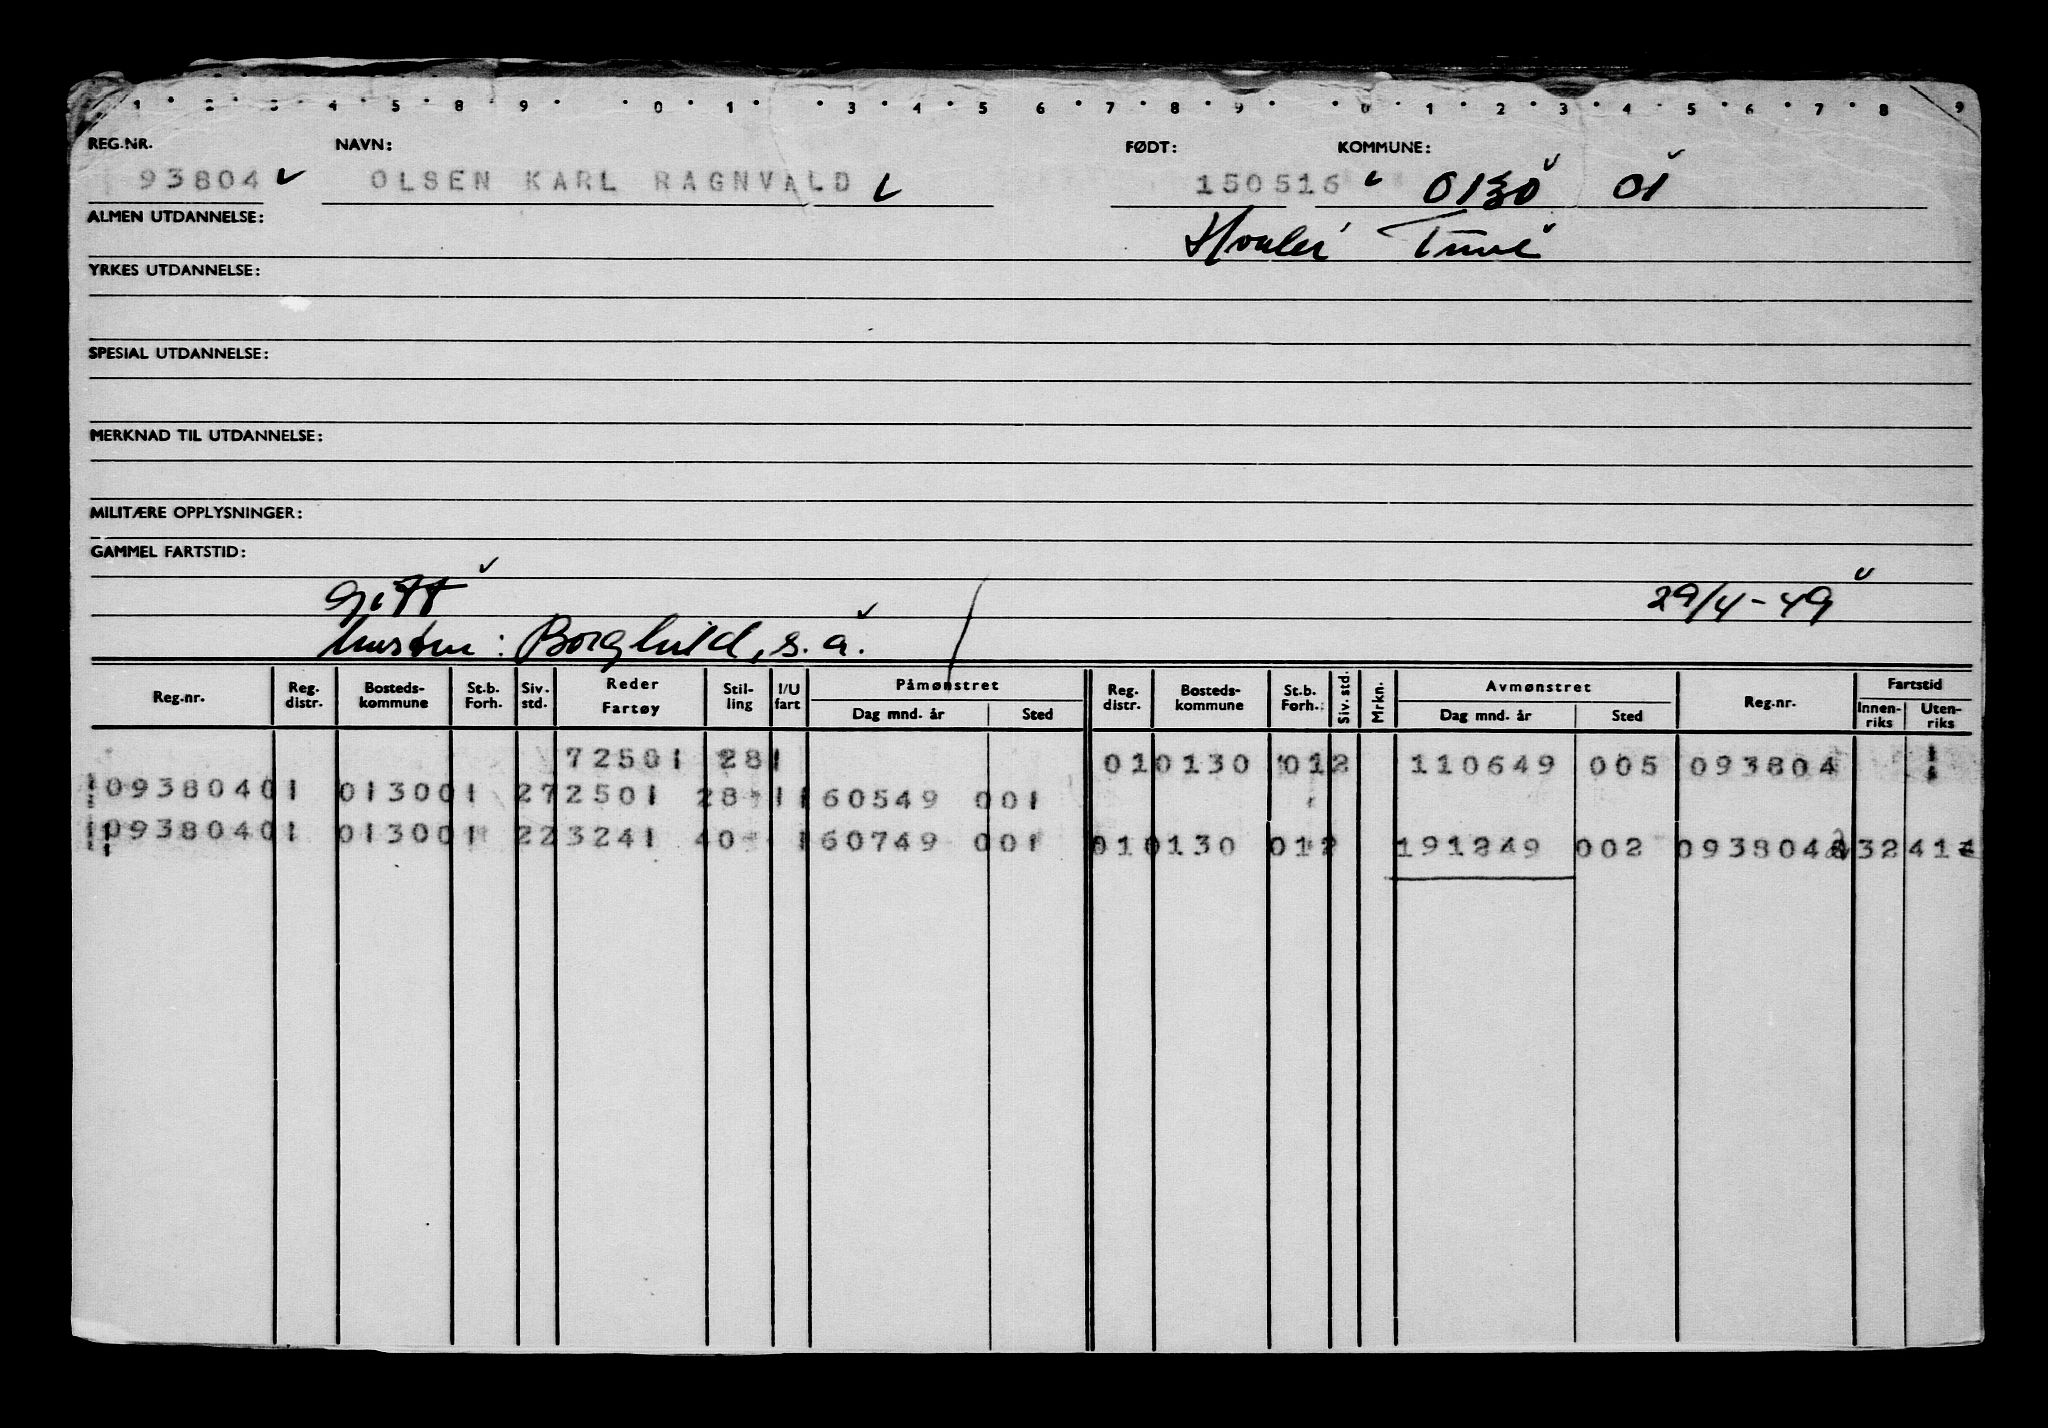 1 2 3 4 5 8 9 0 1 3 4 5 6 7 8 9 0 1 2 3 4 5 6 7 8 9
REG.NR. NAVN: FØDT: KOMMUNE:
93804 OLSEN KARL RAGNVALD 150516 0130 01
ALMEN UTDANNELSE:
Tune
YRKES UTDANNELSE:
SPESIAL UTDANNELSE:
MERKNAD TIL UTDANNELSE:
MILITÆRE OPPLYSNINGER:
GAMMEL FARTSTID:
gift 29/4-49
hustru: Borghild, s.a.
Reg.nr. Reg. distr. Bosteds- kommune St.b. Forh. Siv. std. Reder Fartøy Stil- ling I/U fart Påmønstret Dag mnd. år Sted Reg. distr. Bosteds- kommune St.b. Forh. Siv. std. Mrkn. Avmønstret Dag mnd. år Sted Reg.nr. Fartstid Innen- riks Uten- riks
72501 281 010130 012 110649 005 093804
09380401 013001 272501 28 1 160549 001
09380401 013001 223241 40 160749 001 010130 012 191249 002 093804 32 41